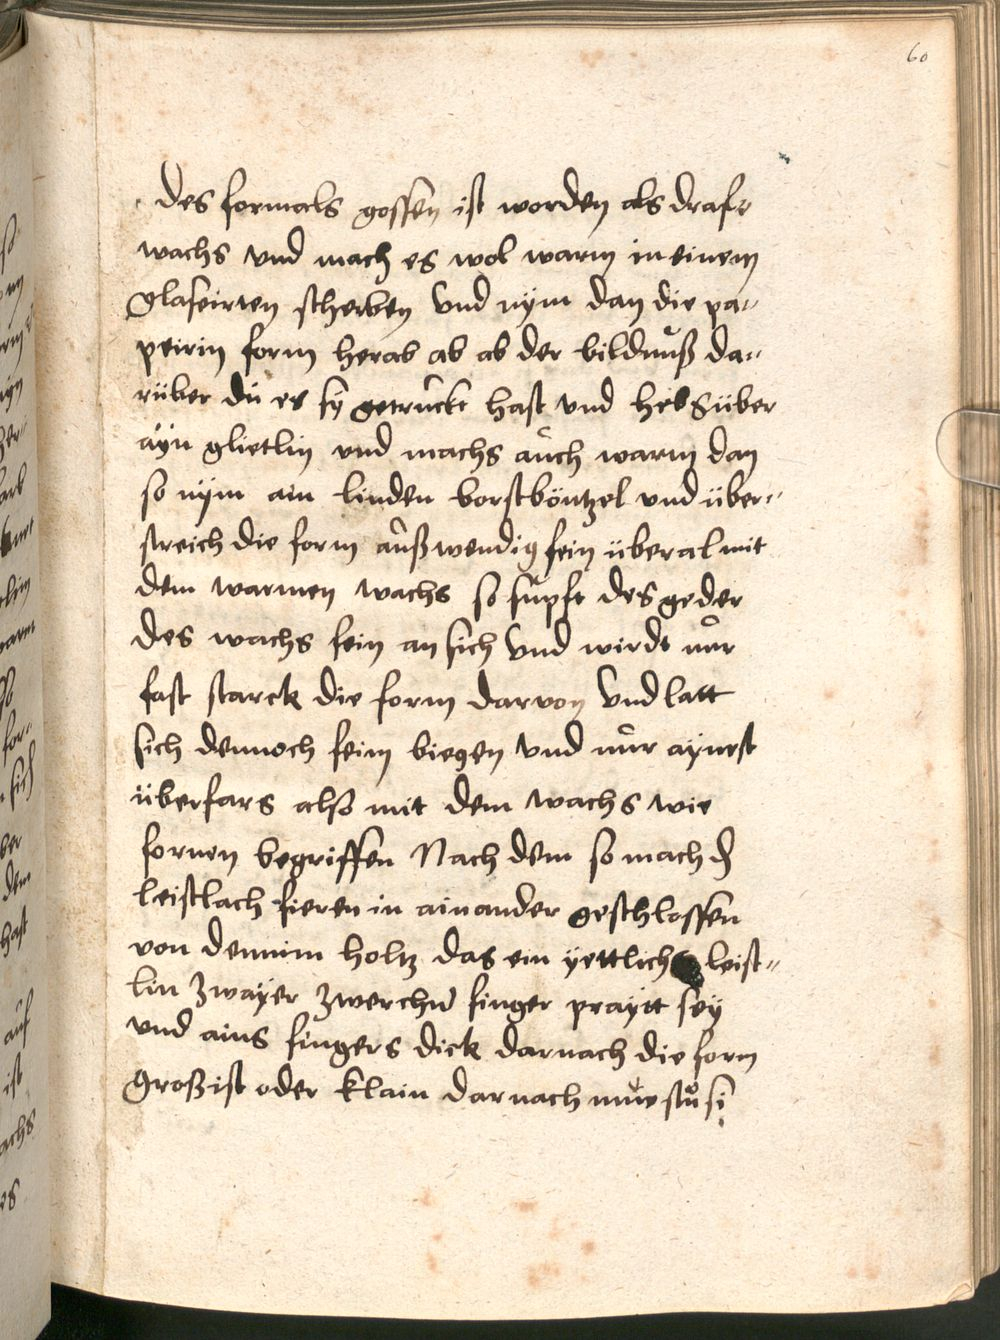 60
des formals gossen ist worden als draft
wachs vnd mach es wol warm in einem
glaseirten scherben vnd nym dan die pa„
peirin form herab ab ab der bildnuß da„
rüber dü es sy getruckt hast vnd heb süber
ayn glietlin vnd machs auch warm dan
so nym ain linden borstböntzel vnd über„
streich die form außwendig fein überal mit
dem warmen wachs so supft des geder
des wachs fein an sich vnd wirdt nur
fast starck die form darvon vnd latt
sich dennoch feim biegen vnd nur aynest
überfars also mit dem wachs wie
fornen begriffen Nach dem so mach
leistlach fieren in ainander geschlossen
von dennim holtz das ein yettlichs leist„
lin zwayer zwerchn finger praytt sey
vnd ains fingers dick darnach die form
groß ist oder klain darnach muestu si